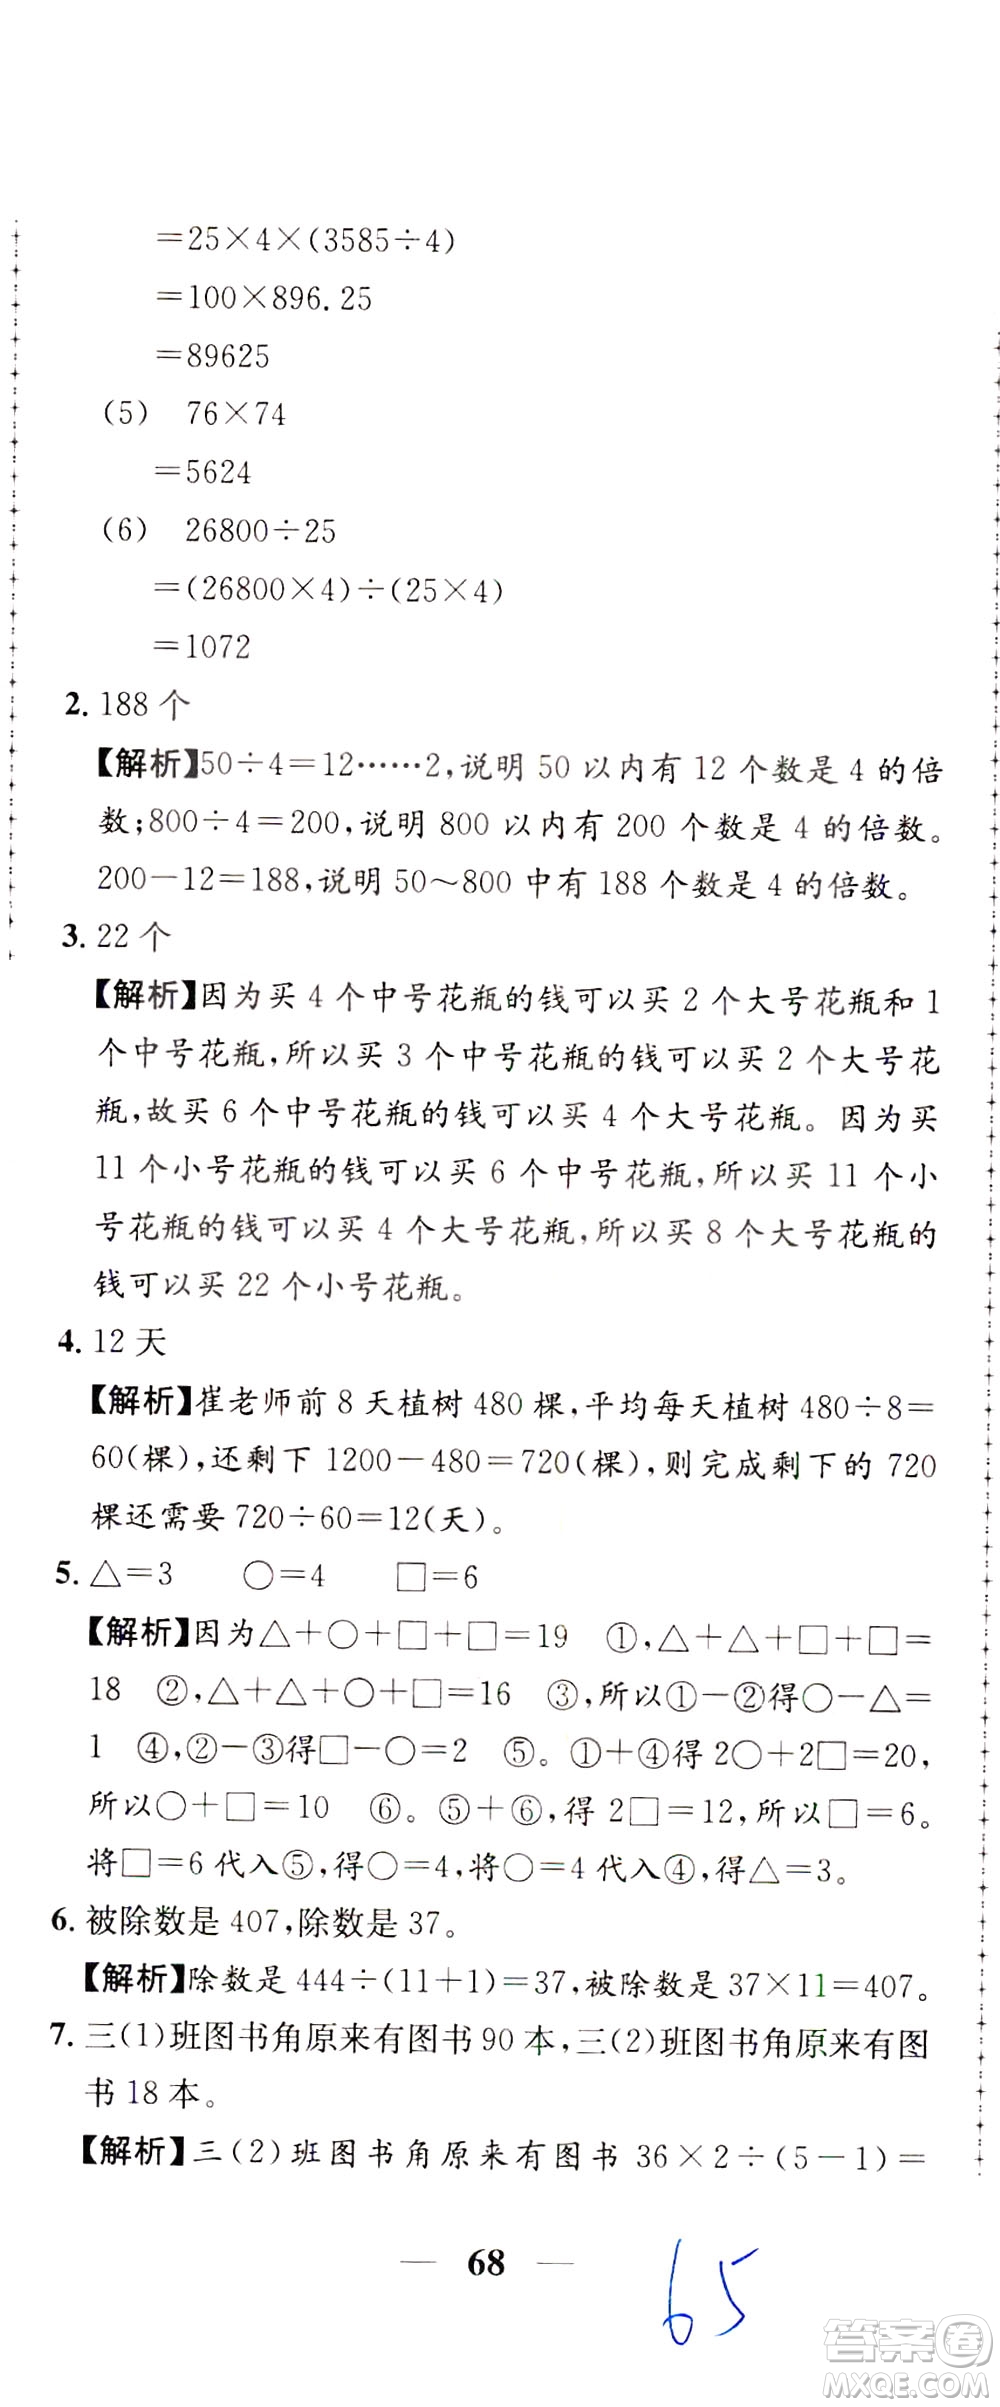 =25×4×(3585÷4)
=100×896.25
=89625
(5) 76×74
=5624
(6) 26800÷25
=(26800×4)÷(25×4)
=1072
2. 188 个
【解析】50÷4=12……2,说明 50 以内有 12 个数是 4 的倍
数;800÷4=200,说明 800 以内有 200 个数是 4 的倍数。
200-12=188,说明 50~800 中有 188 个数是 4 的倍数。
3. 22 个
【解析】因为买 4 个中号花瓶的钱可以买 2 个大号花瓶和 1
个中号花瓶,所以买 3 个中号花瓶的钱可以买 2 个大号花
瓶,故买 6 个中号花瓶的钱可以买 4 个大号花瓶。因为买
11 个小号花瓶的钱可以买 6 个中号花瓶,所以买 11 个小
号花瓶的钱可以买 4 个大号花瓶,所以买 8 个大号花瓶的
钱可以买 22 个小号花瓶。
4. 12 天
【解析】崔老师前 8 天植树 480 棵,平均每天植树 480÷8=
60(棵),还剩下 1200-480=720(棵),则完成剩下的 720
棵还需要 720÷60=12(天)。
5. △=3 ○=4 □=6
【解析】因为△+○+□+□=19 ①,△+△+□+□=
18 ②,△+△+○+□=16 ③,所以①-②得○-△=
1 ④,②-③得□-○=2 ⑤。①+④得 2○+2□=20,
所以○+□=10 ⑥。⑤+⑥,得 2□=12,所以□=6。
将□=6 代入⑤,得○=4,将○=4 代入④,得△=3。
6. 被除数是 407,除数是 37。
【解析】除数是 444÷(11+1)=37,被除数是 37×11=407。
7. 三(1)班图书角原来有图书 90 本,三(2)班图书角原来有图
书 18 本。
【解析】三(2)班图书角原来有图书 36×2÷(5-1)=
68
65
答案圈
MXQE.COM